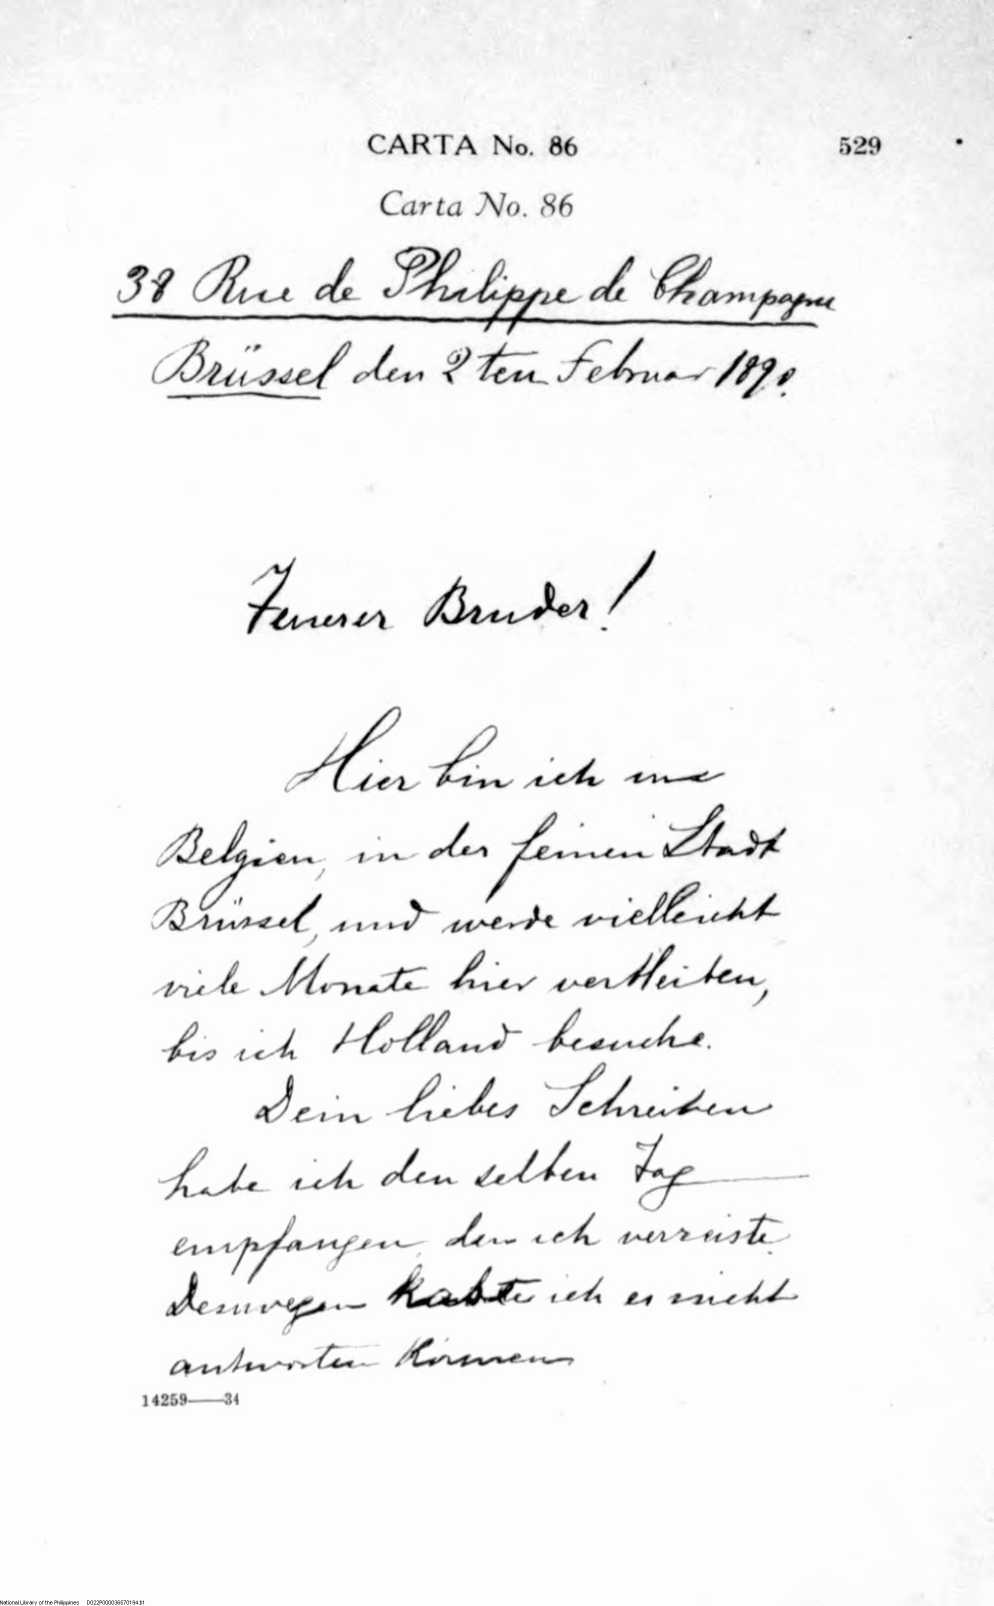 CARTA No. 86 529
Carta No. 86
38 Rue de Philippe de Champagne
Brüssel den 2ten Februar 1890.
Teuerer Bruder!
Hier bin ich in
Belgien, in der feinen Stadt
Brüssel, und werde vielleicht
viele Monate hier verbleiben,
bis ich Holland besuche.
Dein liebes Schreiben
habe ich den selben Tag
empfangen, den ich verreiste.
Deswegen habe ich es nicht
antworten können
14259——34
National Library of the Philippines